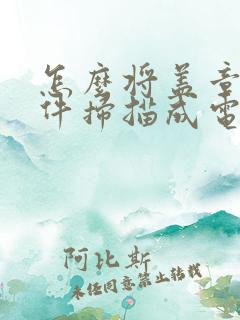 怎麼將蓋章
件掃描成電
阿比斯
未经同意禁止转载